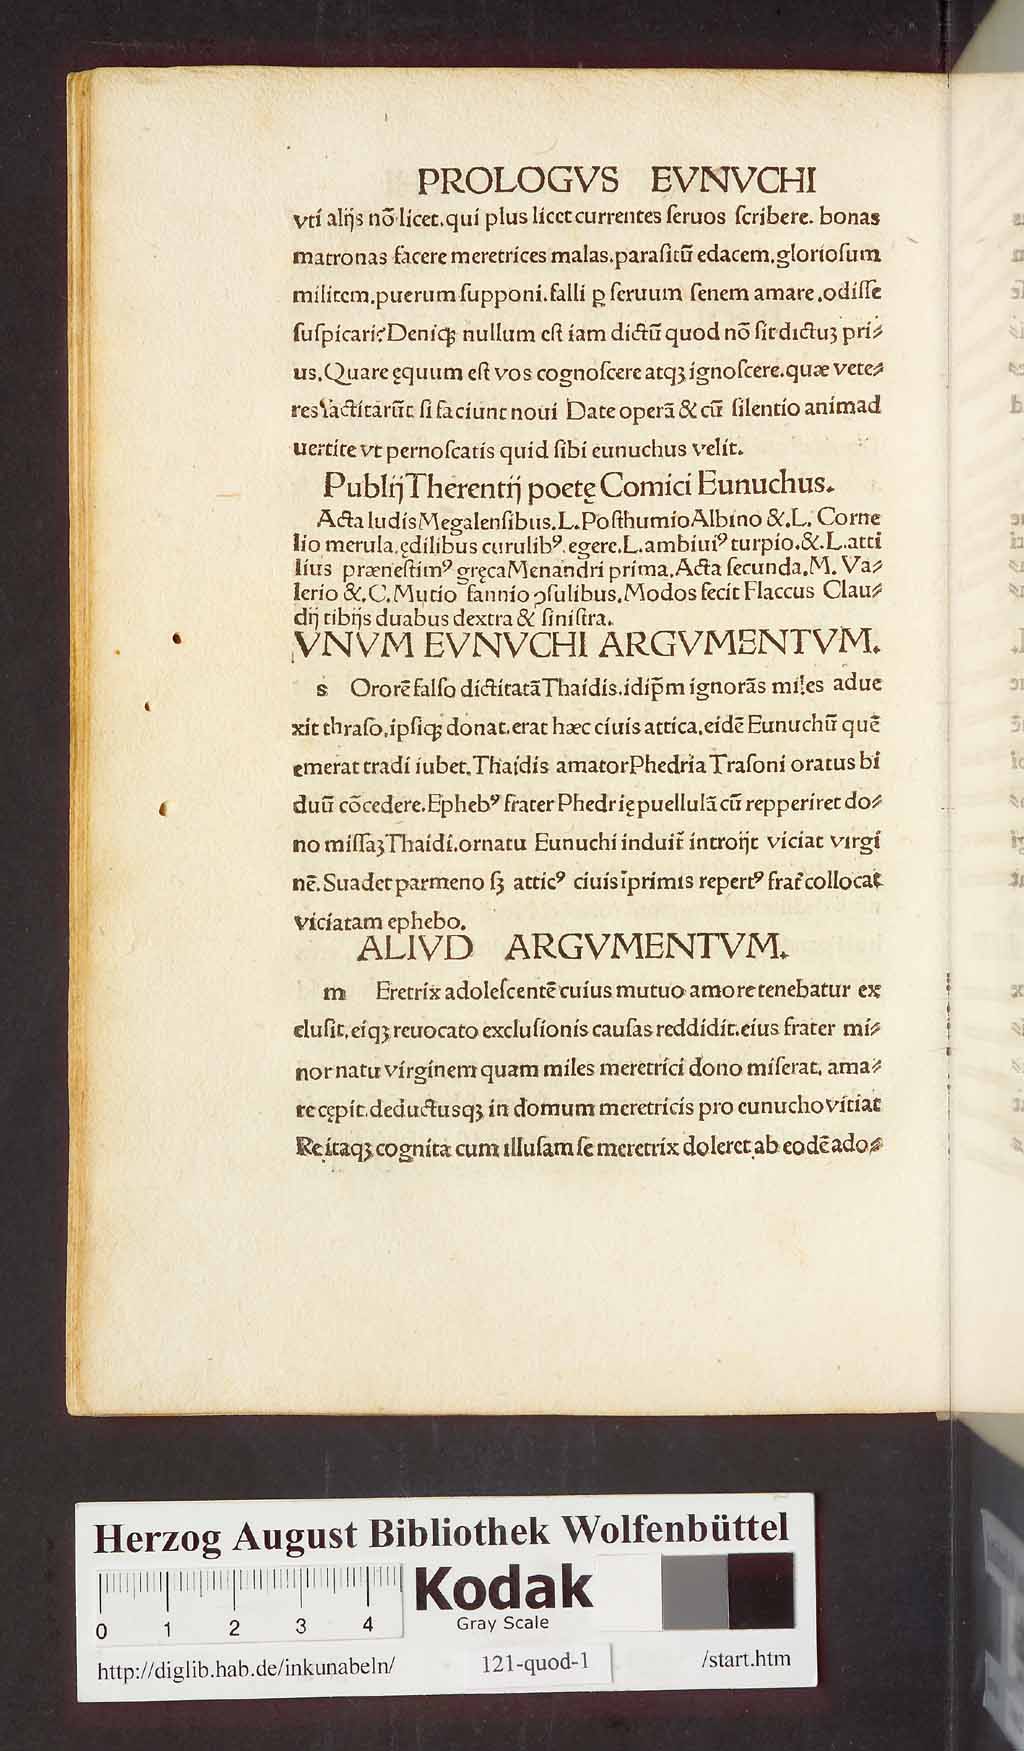 PROLOGVS EVNVCHI
vti alijs nō licet. qui plus licet currentes ſeruos ſcribere. bonas
matronas facere meretrices malas. paraſitū edacem. glorioſum
militem. puerum ſupponi. falli ꝑ ſeruum ſenem amare. odiſſe
ſuſpicari? Deniqꝫ nullum eſt iam dictū quod nō ſit dictuꝫ pri⸗
us. Quare ęquum eſt vos cognoſcere atqꝫ ignoſcere. quæ vete⸗
res factitarūt ſi faciunt noui Date operā & cū ſilentio animad
uertite vt pernoſcatis quid ſibi eunuchus velit.
Publij Therentij poetę Comici Eunuchus.
Acta ludis Megalenſibus. L. Poſthumio Albino &. L. Corne
lio merula. ędilibus curulibꝰ. egere. L. ambiuiꝰ turpio. &. L. atti
lius præneſtimꝰ gręca Menandri prima. Acta ſecunda. M. Va⸗
lerio &. C. Mutio fannio ↄſulibus. Modos fecit Flaccus Clau⸗
dij tibijs duabus dextra & ſiniſtra.
VNVM EVNVCHI ARGVMENTVM.
s Ororē falſo dictitatā Thaidis. id ip̄m ignorās miles adue
xit thraſo. ipſiqꝫ donat. erat hæc ciuis attica. eidē Eunuchū quē
emerat tradi iubet. Thaidis amator Phedria Traſoni oratus bi
duū cōcedere. Ephebꝰ frater Phedrię puellulā cū repperiret do⸗
no miſſaꝫ Thaidi. ornatu Eunuchi induit̄ introijt viciat virgi
nē. Suadet parmeno ſꝫ atticꝰ ciuis īprimis repertꝰ frat̄ collocat
viciatam ephebo.
ALIVD ARGVMENTVM.
m Eretrix adoleſcentē cuius mutuo amore tenebatur ex
cluſit. eiqꝫ reuocato excluſionis cauſas reddidit. eius frater mi⸗
nor natu virginem quam miles meretrici dono miſerat. ama⸗
re cępit. deductusqꝫ in domum meretricis pro eunucho vitiat
Re itaqꝫ cognita cum illuſam ſe meretrix doleret ab eodē ado⸗
Herzog August Bibliothek Wolfenbüttel
0 1 2 3 4
Kodak
Gray Scale
http://diglib.hab.de/inkunabeln/ 121-quod-1 /start.htm